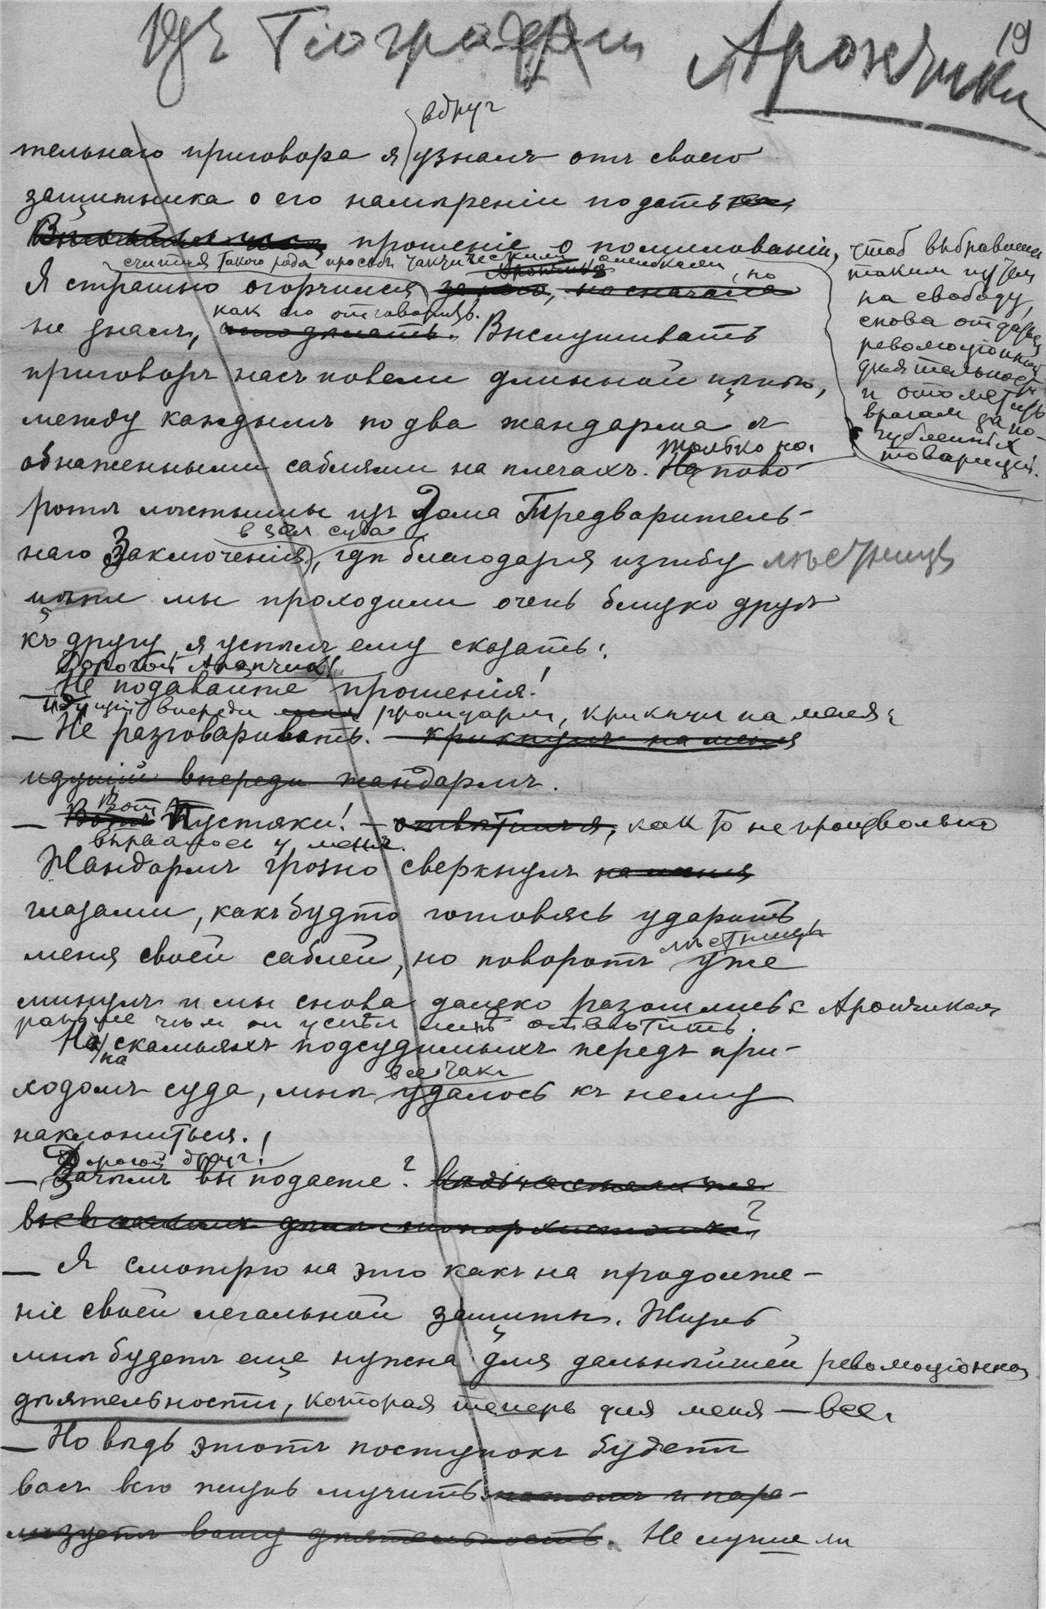 19
Изъ Біографіи Арончика
вдругъ
тельнаго приговора я узналъ отъ своего
защитника о его намѣреніи подать
прошеніе о помилованіи, чтоб выбравшись
таким путем
на свободу,
снова отдаться
революціонной
дѣятельности
и отомстить
врагам за по-
губленных
товарищей.
считая такого рода просьбы тактическими ошибками, но
Я страшно огорчился за него, но сначала
как его отговорить.
не зналъ, что дѣлать. Выслушивать
приговоръ насъ повели длинной цѣпью,
между каждымъ по два жандарма съ
обнаженными саблями на плечахъ. На пово-
только на
ротѣ лѣстницы изъ Дома Предваритель-
в зал суда
наго Заключенія, гдѣ благодаря изгибу лѣстницы
цѣпи мы проходили очень близко другъ
къ другу, я успѣлъ ему сказать:
Дорогой Арончикъ!
— Не подавайте прошенія!
Идущій впереди меня жандарм, крикнул на меня:
— Не разговаривать! — крикнулъ на меня
идущій впереди жандармъ.
Вот
— Вотъ Пустяки! — отвѣтилъ я, как то непроизвольно
вырвалось у меня.
Жандармъ грозно сверкнулъ на меня
глазами, какъ будто готовясь ударить
меня своей саблей, но поворотъ лѣстницы уже
минулъ и мы снова далеко разошлись с Арончикомъ
раньше чѣм он успѣл мнѣ отвѣтить.
На скамьяхъ подсудимыхъ передъ при-
ходомъ суда, мнѣ все таки удалось къ нему
наклониться.
Дорогой друг!
— Зачѣмъ вы подаете?
— Я смотрю на это какъ на продолже-
ніе своей легальной защиты. Жизнь
мнѣ будетъ еще нужна для дальнѣйшей революціонной
дѣятельности, которая теперь для меня — все.
— Но вѣдь этотъ поступокъ будетъ
васъ всю жизнь мучить потомъ и пара-
лизуетъ вашу дѣятельность. Не лучше ли